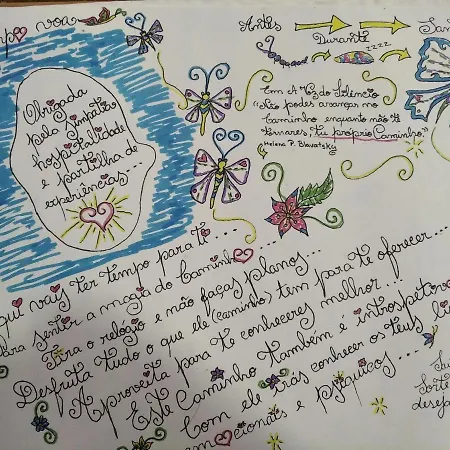 mpo voa
Obrigada
pela Simpatia
hospitalidade
e partilha de
experiências...
Antes
Durante
zzzz
Em A Voz do Silêncio
"Não podes avançar no
caminho enquanto não te
tornares, tu próprio Caminho"
Helena P. Blavatsky
qui vais ter tempo para ti...
para sentir a magia do Caminho...
Tira o relógio e não faças planos...
Desfruta tudo o que ele (caminho) tem para te oferecer...
Aproveita para te conheceres melhor...
Este Caminho também é introspetivo
Com ele irás conhecer os teus li
emocionais e psíquicos...